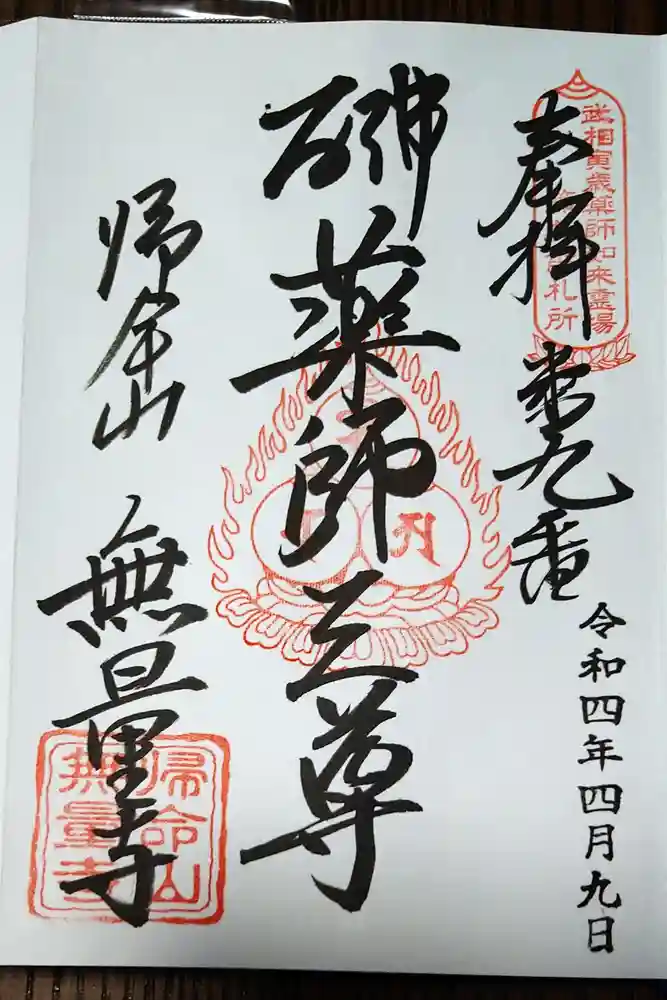 奉拝 第九番
武相寅歳薬師如来霊場
札所
令和四年四月九日
石佛 薬師三尊
帰命山 無量寺
帰命山
無量寺